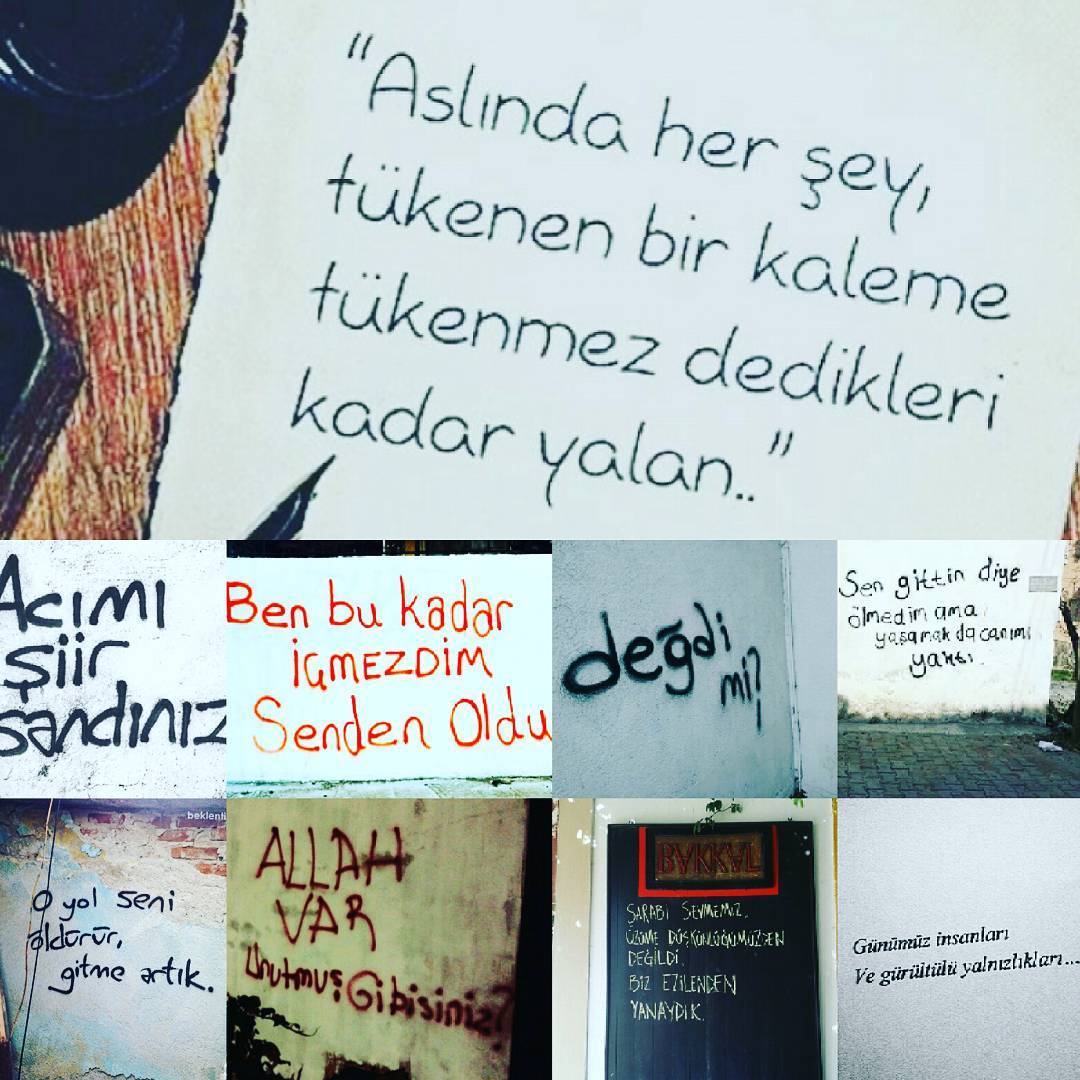 "Aslında her şey,
tükenen bir kaleme
tükenmez dedikleri
kadar yalan.."
Acımı
şiir
sandınız
Ben bu kadar
İÇMEZDİM
Senden Oldu
değdi
mi?
Sen gittin diye
ölmedim ama
yaşamak da canımı
yaktı.
beklenti
O yol seni
öldürür,
gitme artık.
ALLAH
VAR
Unutmuş Gibisiniz?
BAKKAL
ŞARABI SEVMEMİZ,
ÜZÜME DÜŞKÜNLÜĞÜMÜZDEN
DEĞİLDİ.
BİZ EZİLENDEN
YANAYDIK.
Günümüz insanları
Ve gürültülü yalnızlıkları...